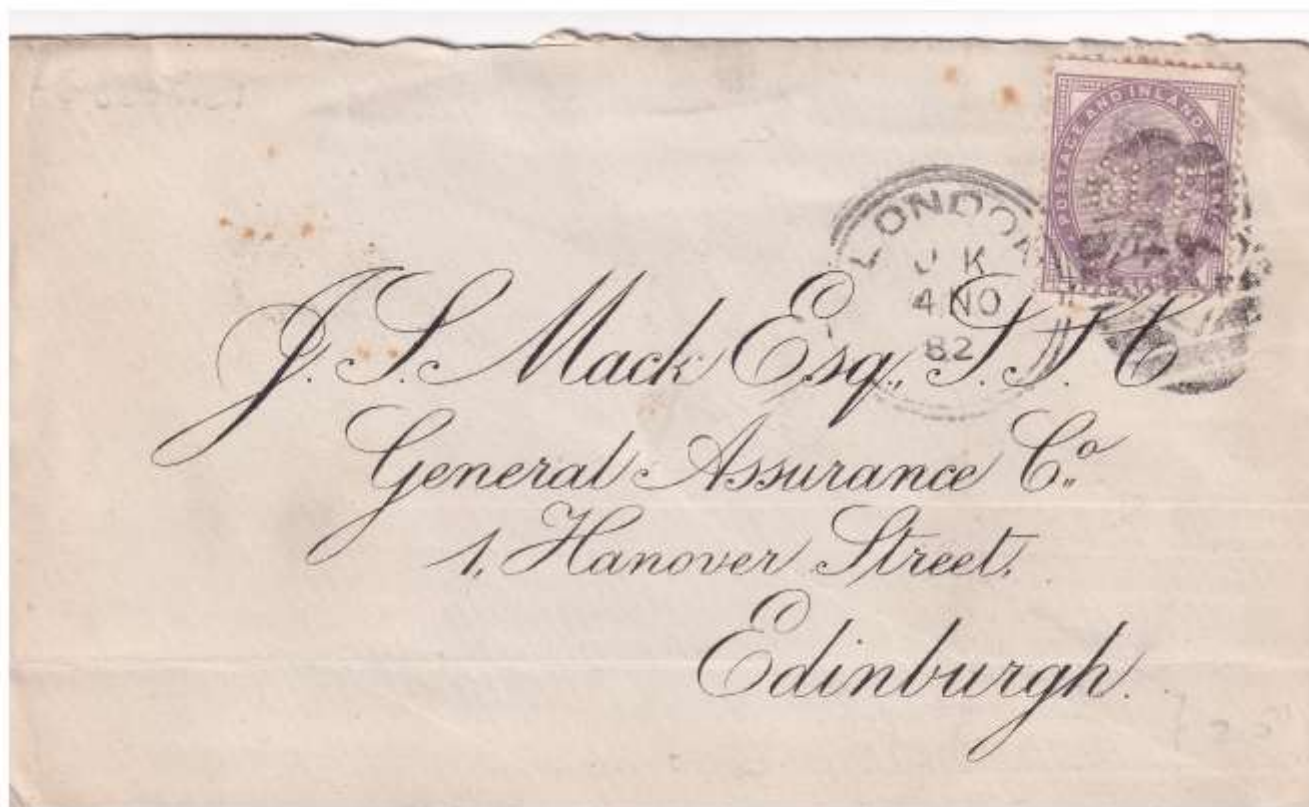 POSTAGE AND INLAND
LONDON
K
4 NO
82
J. S. Mack Esq., S.S.C
General Assurance Co.
1, Hanover Street,
Edinburgh.